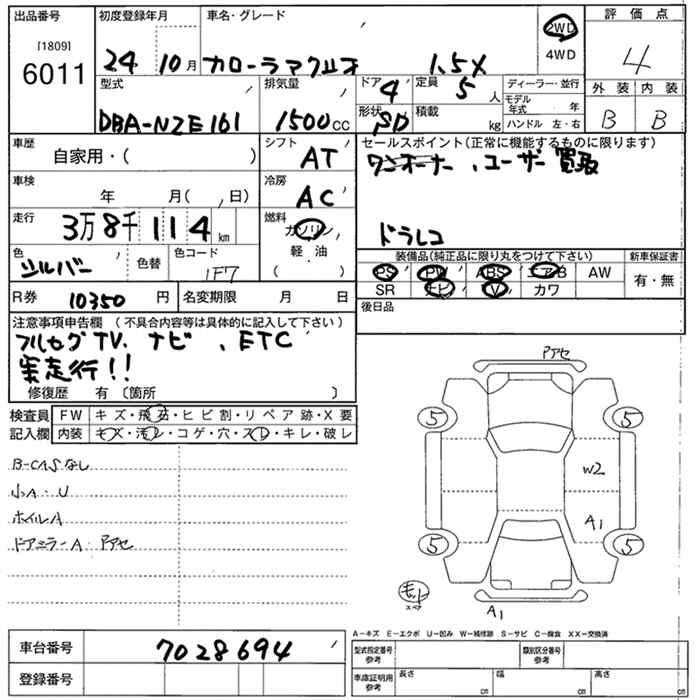 出品番号 初度登録年月 車名・グレード 2WD 評価点
[1809]
6011 24 10月 カローラアクシオ 1.5X 4WD 4
型式 排気量 ドア 4 定員 5人 ディーラー・並行 外装 内装
DBA-NZE161 1500cc 形状 SD 積載 kg モデル年式 年 B B
ハンドル 左・右
車歴 シフト セールスポイント(正常に機能するものに限ります)
自家用・( ) AT ワンオーナー、ユーザー買取
車検 冷房
年 月( , 日) AC
走行 燃料 ドラレコ
3万8千114km ガソリン
色 色替 色コード 軽・油 装備品(純正品に限り丸をつけて下さい) 新車保証書
シルバー 1F7 ( ) PS PW ABS エアB AW 有・無
R券 10350円 名変期限 月 日 SR ナビ TV カワ
注意事項申告欄 (不具合内容等は具体的に記入して下さい) 後日品
フルセグTV、ナビ、ETC
実走行!!
修復歴 有〔箇所 〕
検査員 FW キズ・飛石・ヒビ割・リペア跡・X要
記入欄 内装 キズ・汚レ・コゲ・穴・スレ・キレ・破レ
B-CASなし
小A・U
ホイルA
ドアミラーA・Pアセ
Pアセ
5 5
W2
A1
5 5
スペア
A1
A−キズ E−エクボ U−凹み W−補修跡 S−サビ C−腐食 XX−交換済
車台番号 7028694 型式指定番号 参考 類別区分番号 参考
登録番号 車庫証明用 参考 長さ cm 幅 cm 高さ cm